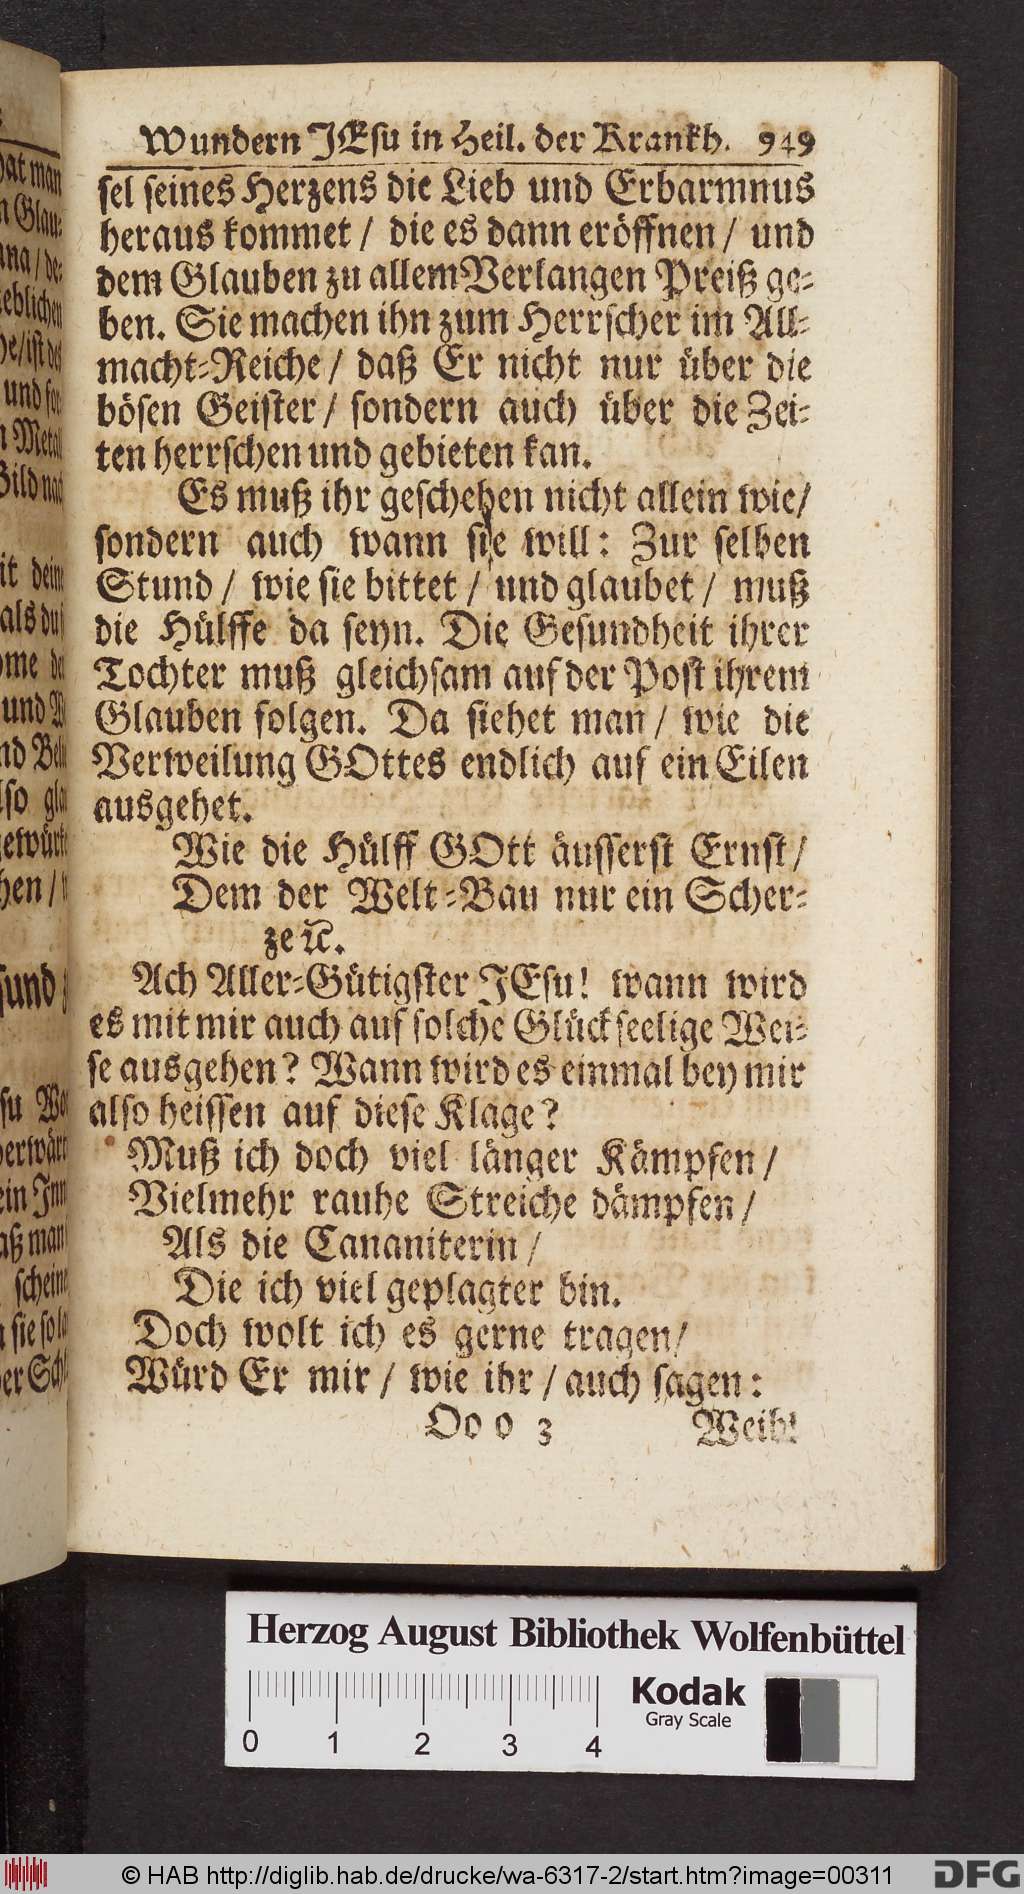 Wundern JEsu in Heil. der Krankh. 949
sel seines Herzens die Lieb und Erbarmnus
heraus kommet / die es dann eröffnen / und
dem Glauben zu allem Verlangen Preiß ge-
ben. Sie machen ihn zum Herrscher im All-
macht-Reiche / daß Er nicht nur über die
bösen Geister / sondern auch über die Zei-
ten herrschen und gebieten kan.
Es muß ihr geschehen nicht allein wie /
sondern auch wann sie will: Zur selben
Stund / wie sie bittet / und glaubet / muß
die Hülffe da seyn. Die Gesundheit ihrer
Tochter muß gleichsam auf der Post ihrem
Glauben folgen. Da siehet man / wie die
Verweilung GOttes endlich auf ein Eilen
ausgehet.
Wie die Hülff GOtt äusserst Ernst /
Dem der Welt-Bau nur ein Scher-
ze ꝛc.
Ach Aller-Gütigster JEsu! wann wird
es mit mir auch auf solche Glückseelige Wei-
se ausgehen? Wann wird es einmal bey mir
also heissen auf diese Klage?
Muß ich doch viel länger Kämpfen /
Vielmehr rauhe Streiche dämpfen /
Als die Cananiterin /
Die ich viel geplagter bin.
Doch wolt ich es gerne tragen /
Würd Er mir / wie ihr / auch sagen:
Oo o 3 Weib!
Herzog August Bibliothek Wolfenbüttel
Kodak
Gray Scale
0 1 2 3 4
© HAB http://diglib.hab.de/drucke/wa-6317-2/start.htm?image=00311
DFG